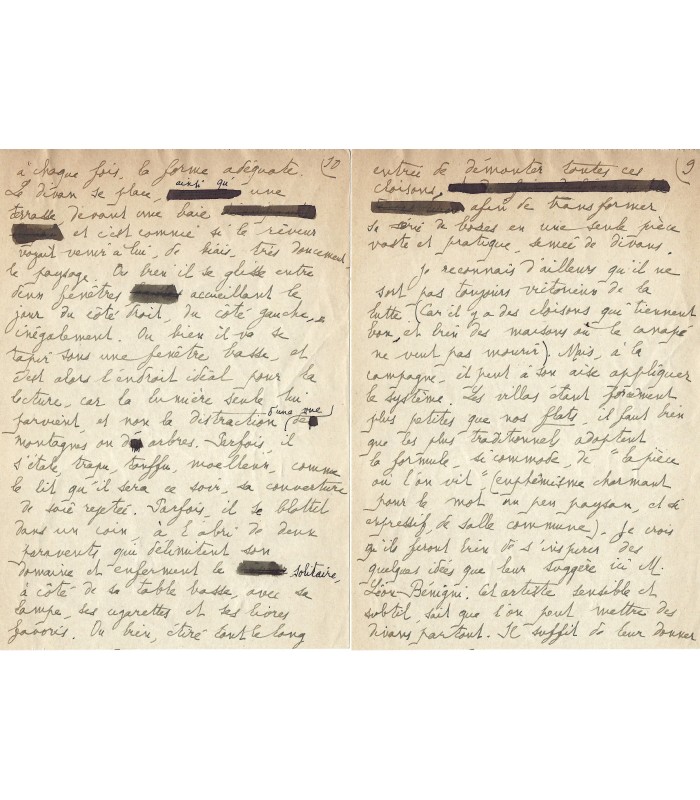 à chaque fois la forme adéquate. (10
Le divan se place, ainsi qu' une
terrasse, devant une baie
et c'est comme si le rêveur
voyait venir à lui, de biais, très doucement,
le paysage. Ou bien il se glisse entre
deux fenêtres accueillant le
jour du côté droit, du côté gauche,
inégalement. Ou bien il va se
tapir sous une fenêtre basse, et
c'est alors l'endroit idéal pour la
lecture, car la lumière seule lui
parvient, et non la distraction (d'une vue) de
montagnes ou d'arbres. Parfois, il
s'étale, trapu, touffu, moelleux, comme
le lit qu'il sera ce soir, sa couverture
de soie rejetée. Parfois, il se blottit
dans un coin à l'abri de deux
paravents qui délimitent son
domaine et enferment le solitaire,
à côté de sa table basse, avec sa
lampe, ses cigarettes et ses livres
favoris. Ou bien, étiré tout le long
(9
entrée de démonter toutes ces
cloisons, afin de transformer
sa série de boxes en une seule pièce
vaste et pratique, semée de divans.
Je reconnais d'ailleurs qu'il ne
sort pas toujours victorieux de la
lutte (Car il y a des cloisons qui tiennent
bon, et bien des maisons où le canapé
ne veut pas mourir). Mais, à la
campagne, il peut à son aise appliquer
le système. Les villas étant forcément
plus petites que nos flats, il faut bien
que les plus traditionnels adoptent
la formule, si commode, de "la pièce
où l'on vit" (euphémisme charmant
pour le mot un peu paysan, et si
expressif, de salle commune). Je crois
qu'ils feront bien de s'inspirer des
quelques idées que leur suggère ici M.
Léon Bénigni. Cet artiste sensible et
subtil, sait que l'on peut mettre des
divans partout. Il suffit de leur donner